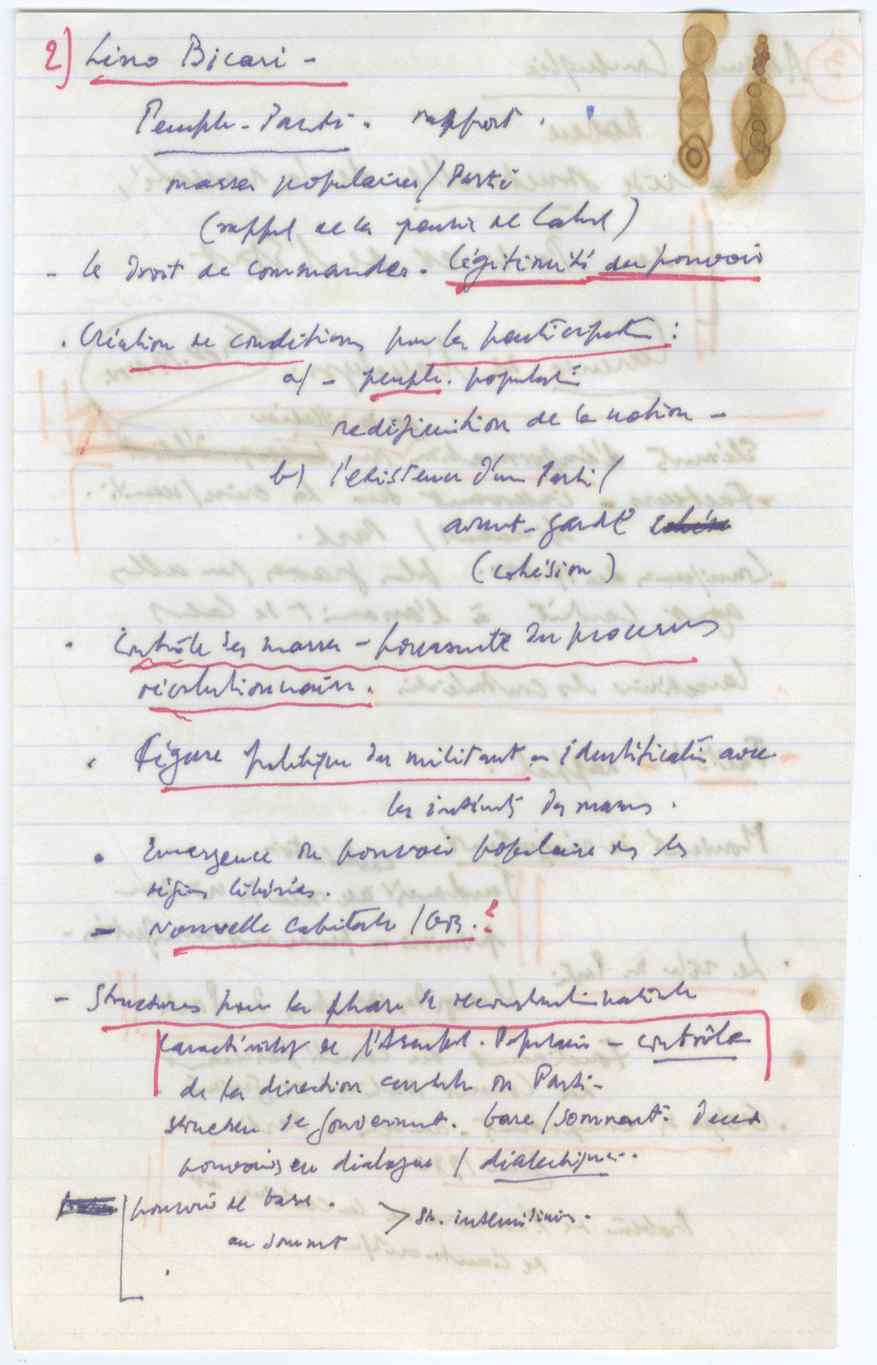 2) Lino Bicari -
Peuple-Parti. rapport.
masses populaires/Parti
(rappel de la pensée de Cabral)
- le droit de commander. légitimité du pouvoir
. Création de conditions pour la participation :
a) - peuple. population
redéfinition de la nation -
b) l'existence d'un Parti/
avant-garde
(cohésion)
. Contrôle des masses - poursuite du processus
révolutionnaire.
. Figure politique du militant = identification avec
les intérêts des masses.
. Emergence du pouvoir populaire ds les
régions libérées.
- Nouvelle capitale / GB. ?
- Structures pour la phase de reconstruction nationale
caractéristiq de l'Assembl. Populaire - contrôle
de la direction centrale du Parti-
structure de gouvernemt. base/sommet. deux
pouvoirs en dialogue / dialectique.
pouvoir de base. > St. intermédiaires.
au sommet